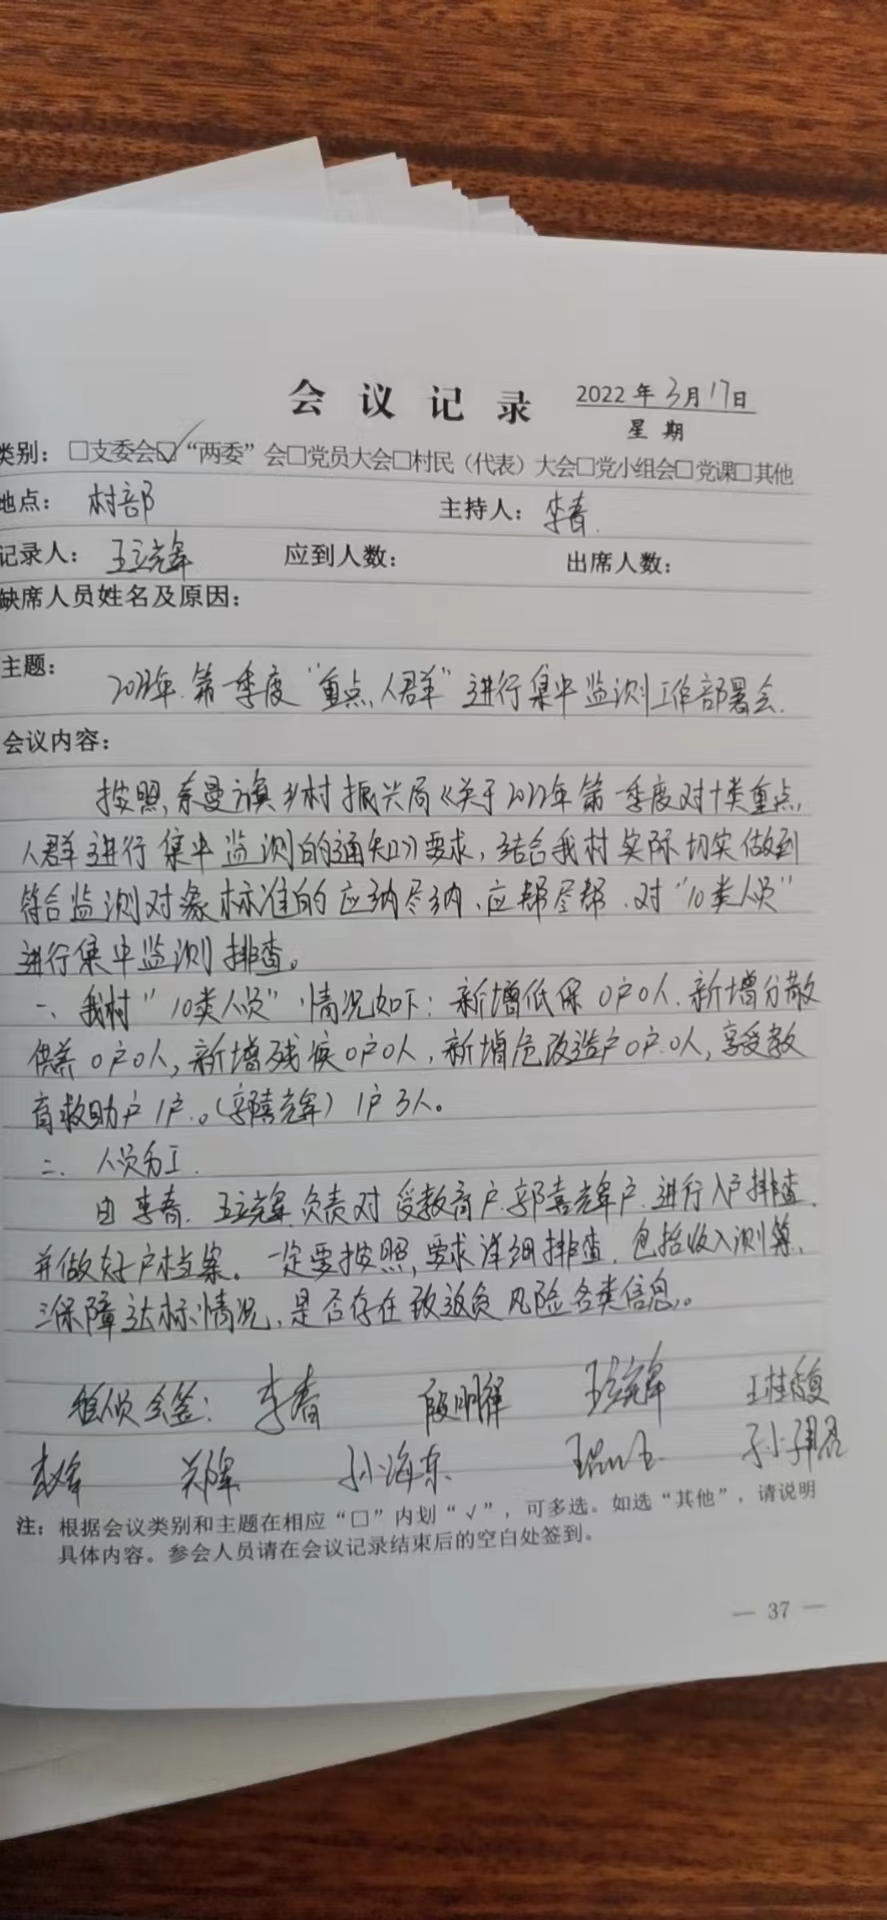 会议记录 2022年3月17日
星期
类别：□支委会☑“两委”会□党员大会□村民（代表）大会□党小组会□党课□其他
地点：村部 主持人：李春
记录人：王立辉 应到人数： 出席人数：
缺席人员姓名及原因：
主题：
2022年第一季度“重点人群”进行集中监测工作部署会.
会议内容：
按照奈曼旗乡村振兴局《关于2022年第一季度对十类重点
人群进行集中监测的通知》要求，结合我村实际切实做到
符合监测对象标准的应纳尽纳、应帮尽帮.对“10类人员”
进行集中监测排查。
一、我村“10类人员”情况如下：新增低保0户0人.新增分散
供养0户0人，新增残疾0户0人，新增危改造户0户.0人，享受教
育救助户1户.。（郭喜辉）1户3人。
二、人员分工.
由李春.王立辉负责对受教育户.郭喜辉户.进行入户排查.
并做好户档案。一定要按照要求详细排查.包括收入测算，
三保障达标情况，是否存在致返贫风险各类信息。
李春 段明辉 王立辉 王桂
孙海东
注：根据会议类别和主题在相应“□”内划“√”，可多选。如选“其他”，请说明
具体内容。参会人员请在会议记录结束后的空白处签到。
— 37 —